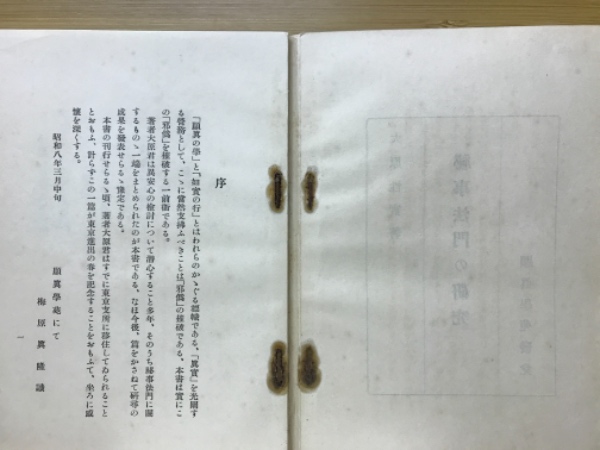 序
『顯眞の學』と『如實の行』とはわれらのかゝぐる標幟である。『眞實』を光闡す
る登務として、こゝに當然支拂ふべきことは『邪僞』の摧破である。本書は實にこ
の『邪僞』を摧破する一前衞である。
著者大原君は異安心の檢討について潛心すること多年、そのうち秘事法門に關
するものゝ一端をまとめられたのが本書である。なほ今後、篇をかさねて研尋の
成果を發表せらるゝ豫定である。
本書の刊行せらるゝ頃、著者大原君はすでに東京支所に移住してゐられること
とおもふ、計らずこの一篇が東京進出の春を記念することをおもふて、坐ろに感
懷を深くする。
昭和八年三月中旬
顯眞學苑にて
梅原眞隆誌
一
秘事法門の研究